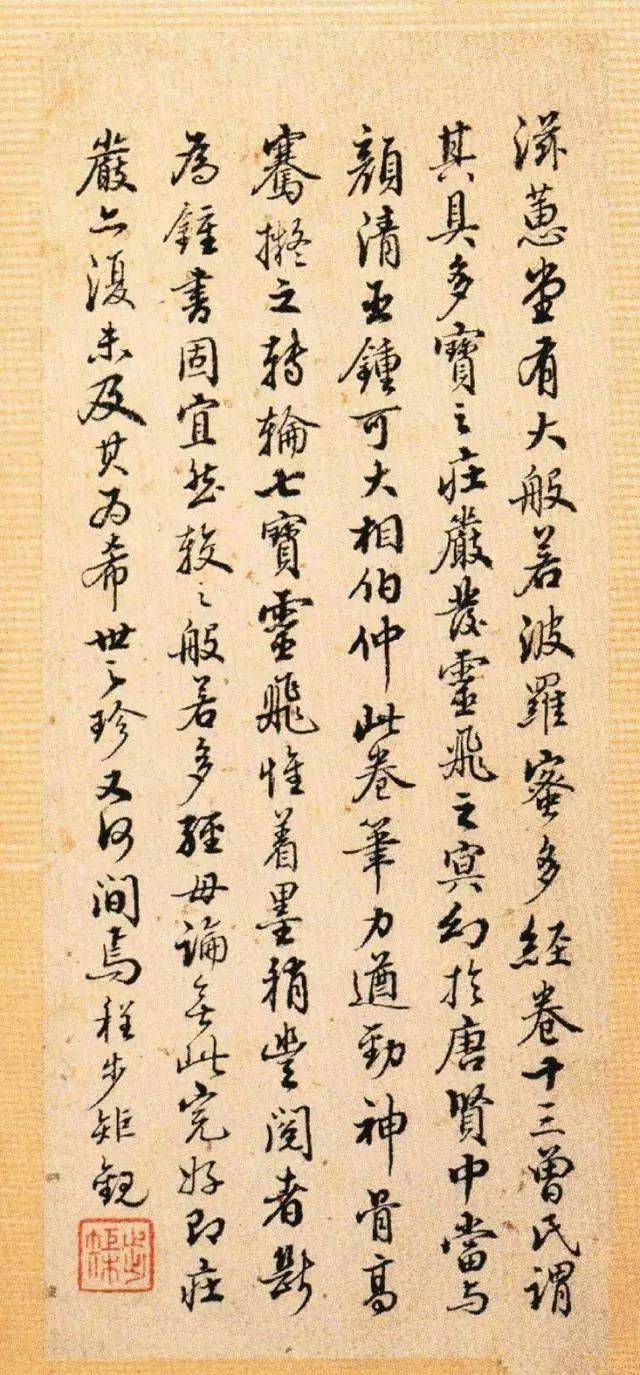 滋蕙堂有大般若波羅蜜多經卷十三曾氏謂
其具多寶之莊嚴發靈飛之冥幻於唐賢中當与
顏清臣鍾可大相伯仲此卷筆力遒勁神骨高
騫擬之轉輪七寶靈飛惟着墨稍豐閱者斷
為鍾書固宜然較之般若多經毋論無此完好即莊
嚴亦復未及其為希世之珍又何間焉程步矩觀
步矩